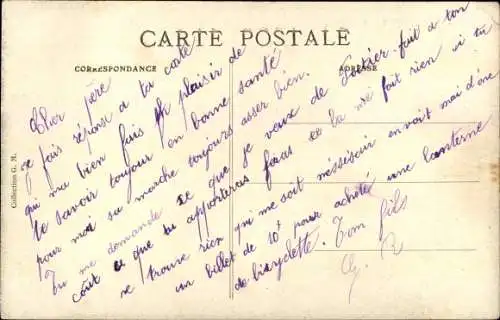 CARTE POSTALE
CORRESPONDANCE
ADRESSE
Collection G. M.
Cher père
Je fais réponse a ta carte
qui ma bien fais plaisir de
te savoir toujour en bonne santé
pour moi sa marche toujours asser bien.
Tu me demande se que je veux de fait a ton
cout ce que tu apporteras feras sa me fait rien si tu
ne trouve rien qui me soit nésséseir envoit moi d'onc
un billet de 10f pour acheté une lanterne
de bicyclette. Ton fils
G. R